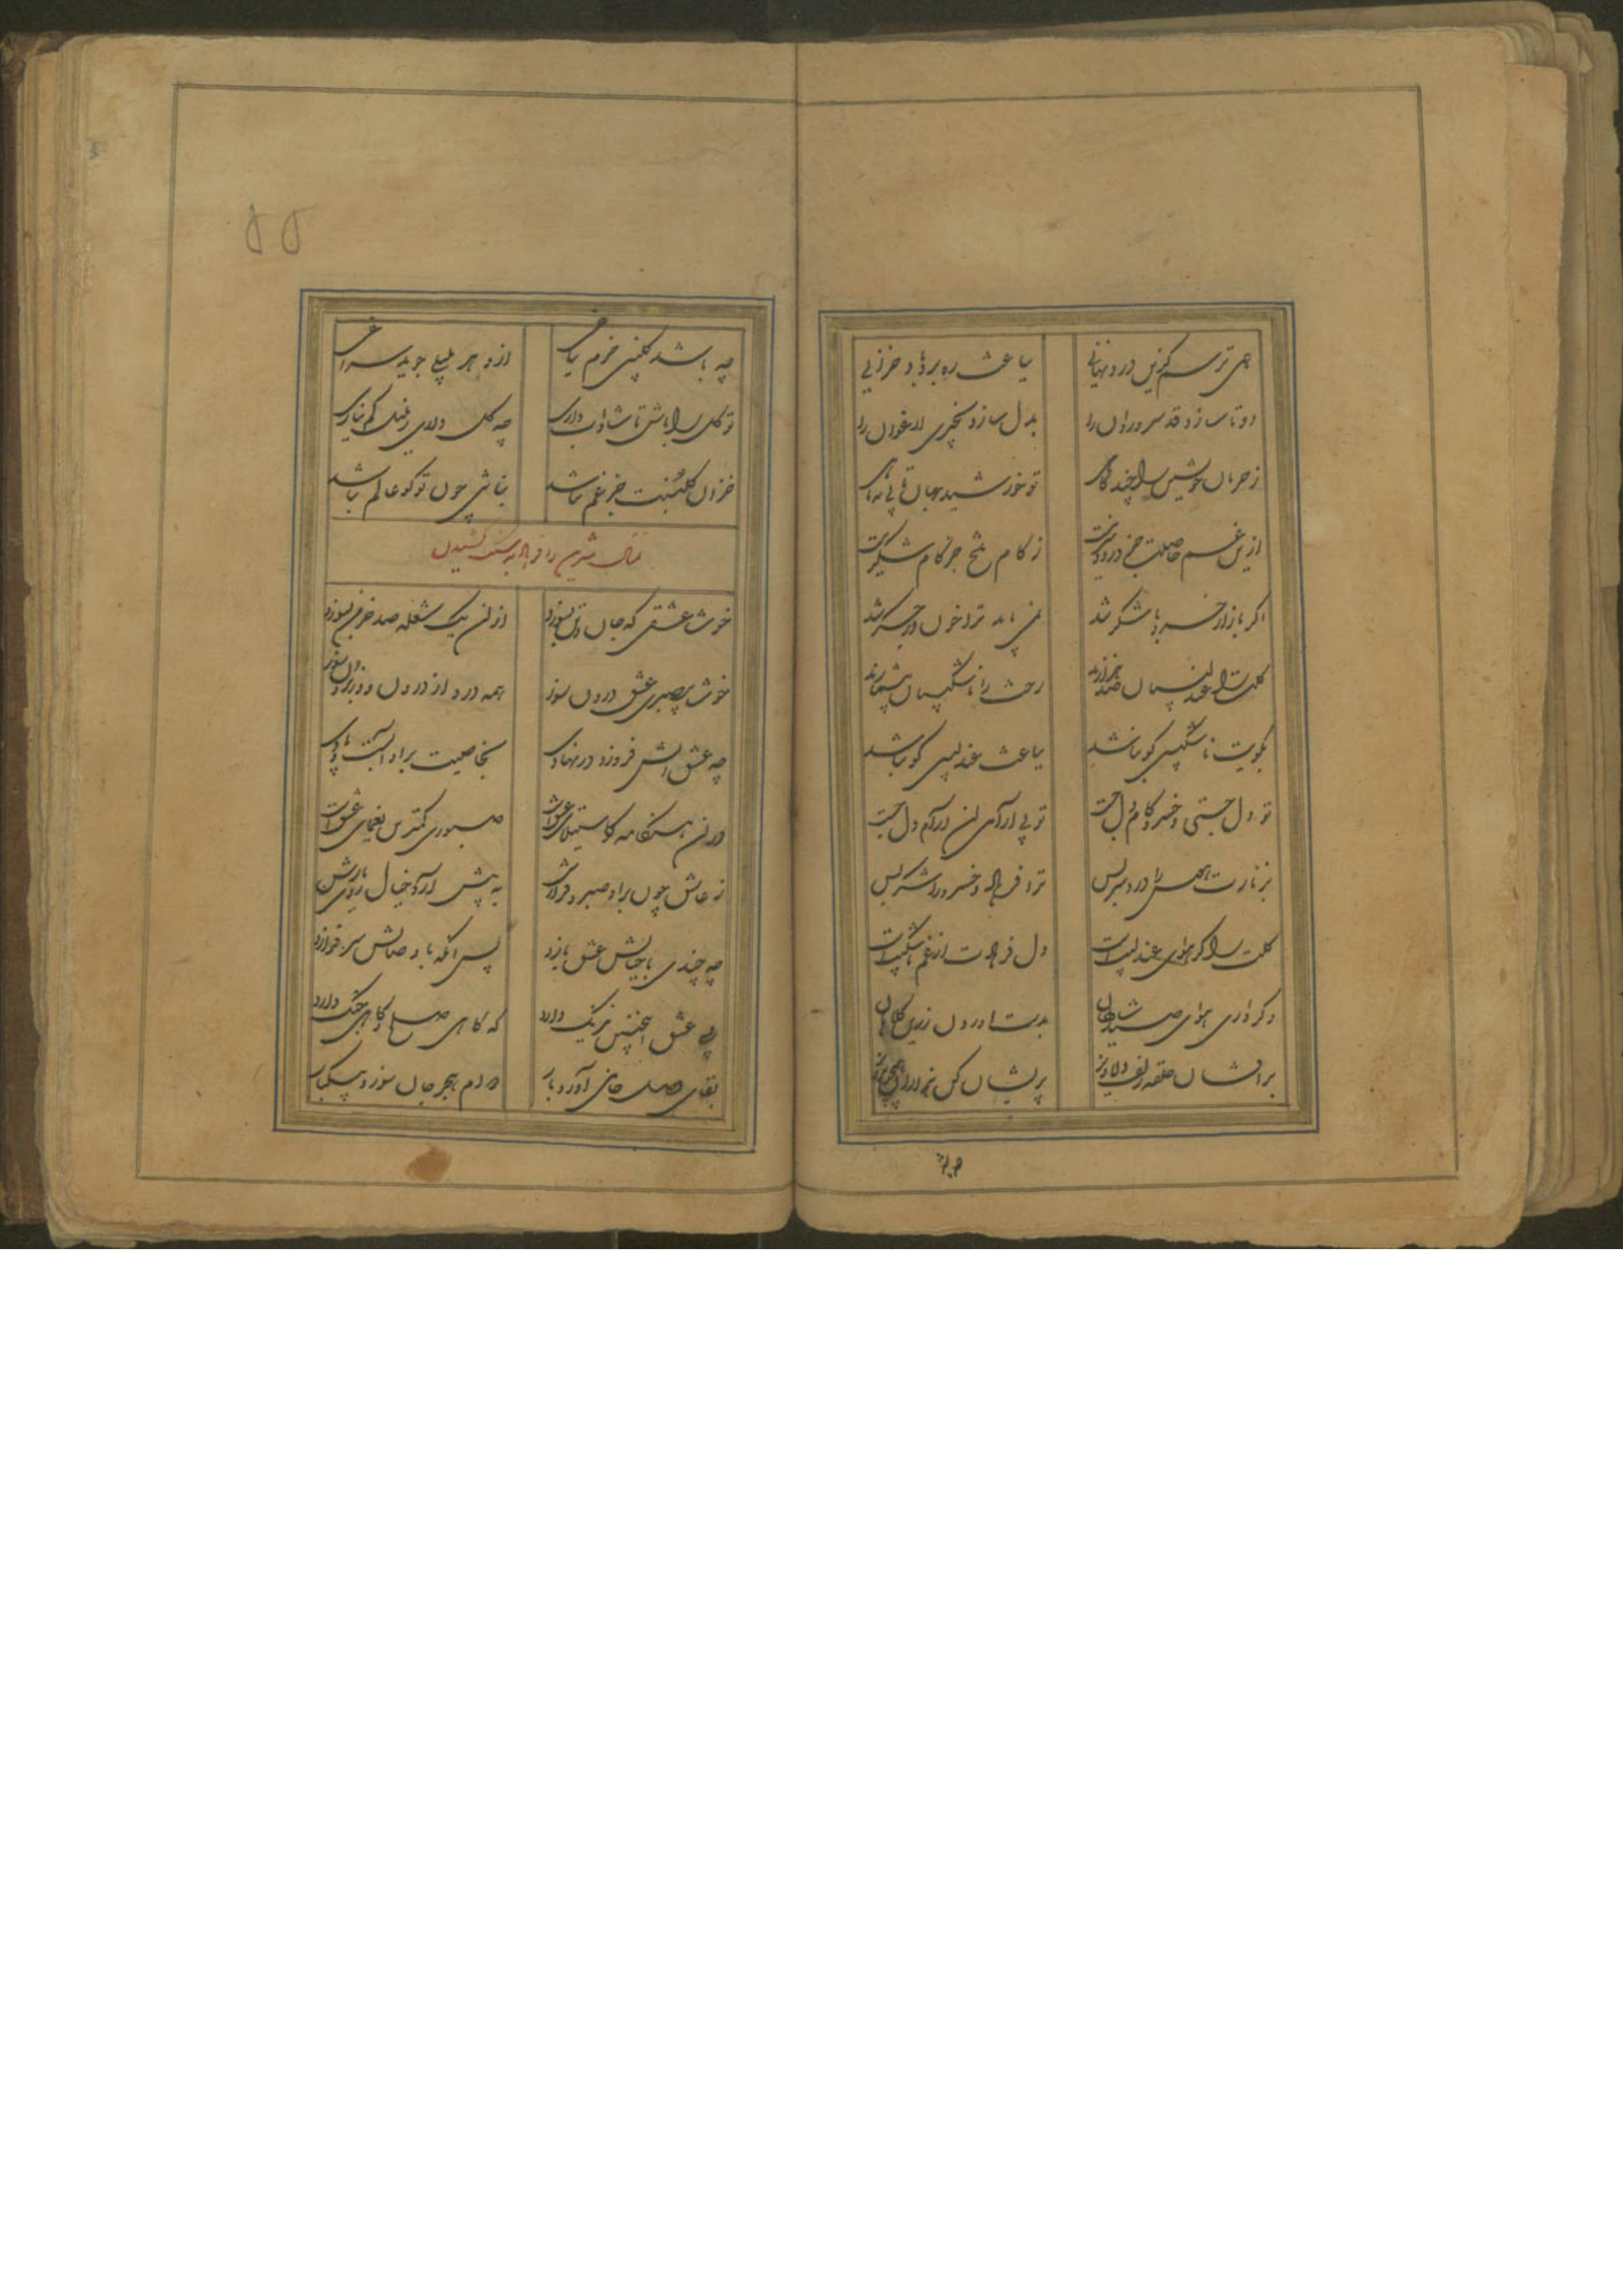 همی ترسم کزین درد نهانی بباغت ره برد باد خزانی
دوتا سازد قد سرو روان را بدل سازد بخیری ارغوان را
ز حرمان خویش را چند کاهی تو خورشید جهان تابی نه ماهی
ازین غم حاصلت جز درد دل نیست ز کام تلخ جز کام
اگر بازار خسرو با شکر شد نمی باید ترا خون در جگر شد
گلت را عندلیبان صد هزارند رخت را ناشکیبان بیشمارند
بکویت ناشکیبی گو نباشد بباغت عندلیبی گو نباشد
تو دل جستی و خسرو کام دل جست تو بی آرامی آن آرام دل جست
ز نازت را درد سر بس ترا فرهاد و خسرو را شکر بس
گلت را گر هوای عندلیب است دل فرهاد از غم ناشکیب است
وگر داری هوای صید شاهان بدست آور دل زرین کلاهان
برافشان حلقه زلف دلاویز پریشان کن هزاران همچو پرویز
چه باشد
چه باشد گلبنی خرم بباغی ازو هر بلبلی جوید سراغی
تو گل را باش تا شاداب داری چه گل داری ز بلبل کم نیاری
خزان گلبنت جز غم نباشد نباشی چون تو گو عالم نباشد
شیرین را فرهاد به سنگ کشیدن
خوشا عشقی که جان و تن بسوزد ازان یک شعله صد خرمن بسوزد
خوشا بی صبری عشق درون سوز همه درد از درون و از برون سوز
چه عشق آتش فروزد در نهادی بخاصیت بر او آبست بادی
در آن هنگامه کاستیلای عشق است صبوری کمترین یغمای عشق است
ز عاشق چون برد صبر و قرارش به پیش آرد خیال روی یارش
چه چندی با خیالش عشق بازد پس آنگه با وصالش سر فرازد
بلی عشق اینچنین نیرنگ دارد که گاهی صلح و گاهی جنگ دارد
بقای وصل جانان آورد بار مدام هجر جان سوزد بیکبار